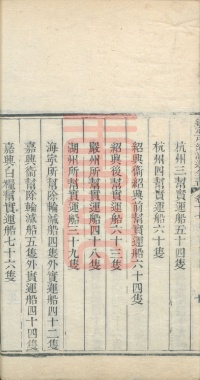 杭州三幫實運船五十四隻
杭州四幫實運船六十隻
紹興衛紹興前幫實運船六十四隻
紹興後幫實運船六十三隻
嚴州所幫實運船四十八隻
湖州所幫實運船三十九隻
海寧所幫除輪減船四隻外實運船四十二隻
嘉興衛幫除輪減船五隻外實運船四十四隻
嘉興白糧幫實運船七十六隻